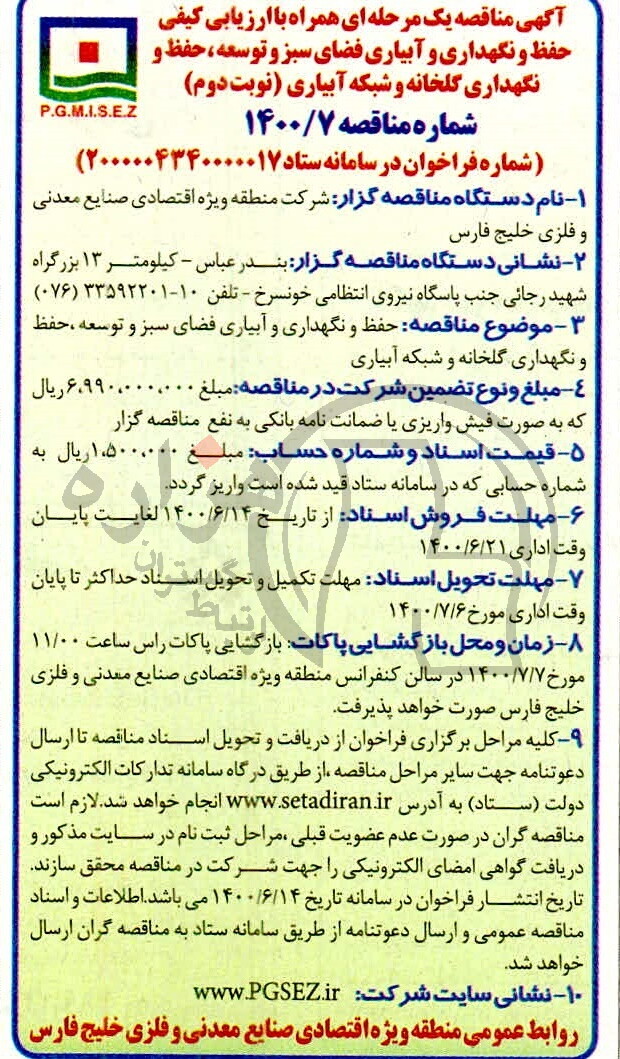 آگهی مناقصه یک مرحله ای همراه با ارزیابی کیفی
حفظ و نگهداری و آبیاری فضای سبز و توسعه ، حفظ و
نگهداری گلخانه و شبکه آبیاری (نوبت دوم)
P.G.M.I.S.E.Z
شماره مناقصه ۱۴۰۰/۷
(شماره فراخوان در سامانه ستاد ۲۰۰۰۰۰۴۳۴۰۰۰۰۰۱۷)
۱-نام دستگاه مناقصه گزار: شرکت منطقه ویژه اقتصادی صنایع معدنی
و فلزی خلیج فارس
۲-نشانی دستگاه مناقصه گزار: بندر عباس - کیلومتر ۱۳ بزرگراه
شهید رجائی جنب پاسگاه نیروی انتظامی خونسرخ - تلفن ۱۰-۳۳۵۹۲۲۰۱ (۰۷۶)
۳-موضوع مناقصه: حفظ و نگهداری و آبیاری فضای سبز و توسعه ،حفظ
و نگهداری گلخانه و شبکه آبیاری
۴-مبلغ و نوع تضمین شرکت در مناقصه: مبلغ ۶،۹۹۰،۰۰۰،۰۰۰ ریال
که به صورت فیش واریزی یا ضمانت نامه بانکی به نفع مناقصه گزار
۵-قیمت اسناد و شماره حساب: مبلغ ۱،۵۰۰،۰۰۰ ریال به
شماره حسابی که در سامانه ستاد قید شده است واریز گردد.
۶-مهلت فروش اسناد: از تاریخ ۱۴۰۰/۶/۱۴ لغایت پایان
وقت اداری ۱۴۰۰/۶/۲۱
۷-مهلت تحویل اسناد: مهلت تکمیل و تحویل اسناد حداکثر تا پایان
وقت اداری مورخ ۱۴۰۰/۷/۶
۸-زمان و محل بازگشایی پاکات: بازگشایی پاکات راس ساعت ۱۱/۰۰
مورخ ۱۴۰۰/۷/۷ در سالن کنفرانس منطقه ویژه اقتصادی صنایع معدنی و فلزی
خلیج فارس صورت خواهد پذیرفت.
۹-کلیه مراحل برگزاری فراخوان از دریافت و تحویل اسناد مناقصه تا ارسال
دعوتنامه جهت سایر مراحل مناقصه ،از طریق درگاه سامانه تدارکات الکترونیکی
دولت (ستاد) به آدرس www.setadiran.ir انجام خواهد شد.لازم است
مناقصه گران در صورت عدم عضویت قبلی ،مراحل ثبت نام در سایت مذکور و
دریافت گواهی امضای الکترونیکی را جهت شرکت در مناقصه محقق سازند.
تاریخ انتشار فراخوان در سامانه تاریخ ۱۴۰۰/۶/۱۴ می باشد.اطلاعات و اسناد
مناقصه عمومی و ارسال دعوتنامه از طریق سامانه ستاد به مناقصه گران ارسال
خواهد شد.
۱۰-نشانی سایت شرکت: www.PGSEZ.ir
روابط عمومی منطقه ویژه اقتصادی صنایع معدنی و فلزی خلیج فارس